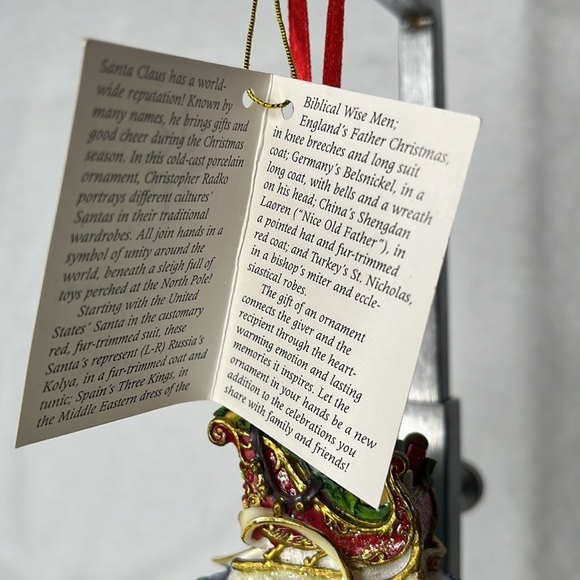 Santa Claus has a world-
wide reputation! Known by
many names, he brings gifts and
good cheer during the Christmas
season. In this cold-cast porcelain
ornament, Christopher Radko
portrays different cultures'
Santas in their traditional
wardrobes. All join hands in a
symbol of unity around the
world, beneath a sleigh full of
toys perched at the North Pole!
Starting with the United
States' Santa in the customary
red, fur-trimmed suit, these
Santa's represent (L-R) Russia's
Kolya, in a fur-trimmed coat and
tunic; Spain's Three Kings, in
the Middle Eastern dress of the
Biblical Wise Men;
England's Father Christmas,
in knee breeches and long suit
coat; Germany's Belsnickel, in a
long coat, with bells and a wreath
on his head; China's Shengdan
Laoren ("Nice Old Father"), in
a pointed hat and fur-trimmed
red coat; and Turkey's St. Nicholas,
in a bishop's miter and eccle-
siastical robes.
The gift of an ornament
connects the giver and the
recipient through the heart-
warming emotion and lasting
memories it inspires. Let the
ornament in your hands be a new
addition to the celebrations you
share with family and friends!